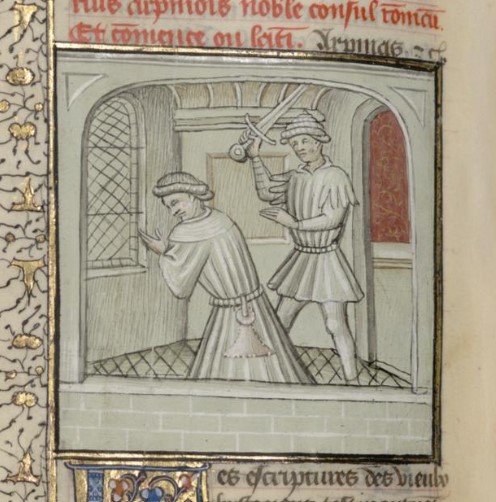 rius arpinois noble consul romain.
Et comence ou latī. Arpinas. &c
Les escriptures des vieulx